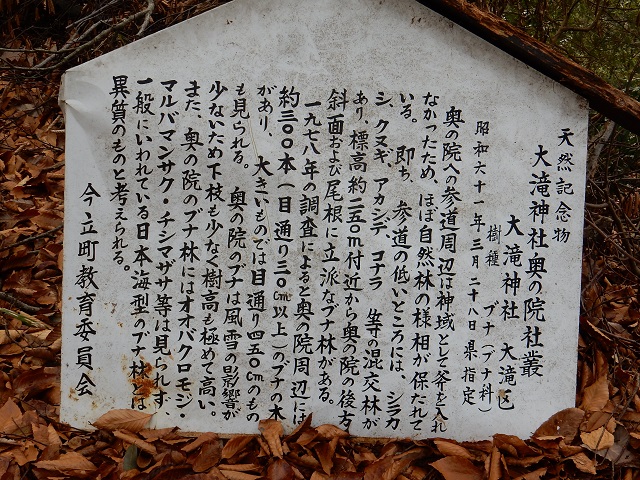 天然記念物
大滝神社奥の院社叢
大滝神社 大滝区
樹種 ブナ(ブナ科)
昭和六十一年三月二十八日県指定
奥の院への参道周辺は神域として斧を入れ
なかったため、ほぼ自然林の様相が保たれて
いる。即ち、参道の低いところには、シラカ
シ、クヌギ、アカシデ、コナラ 等の混交林が
あり、標高約二五〇m付近から奥の院の後方
斜面および尾根に立派なブナ林がある。
一九七八年の調査によると奥の院周辺には
約三〇〇本(目通り三〇cm以上)のブナの木
があり、大きいものでは目通り四五〇cmのもの
も見られる。 奥の院のブナは風雪の影響が
少ないため下枝も少なく樹高も極めて高い。
また、奥の院のブナ林にはオオバクロモジ・
マルバマンサク・チシマザサ等は見られず、
一般にいわれている日本海型のブナ林とは
異質のものと考えられる。
今立町教育委員会